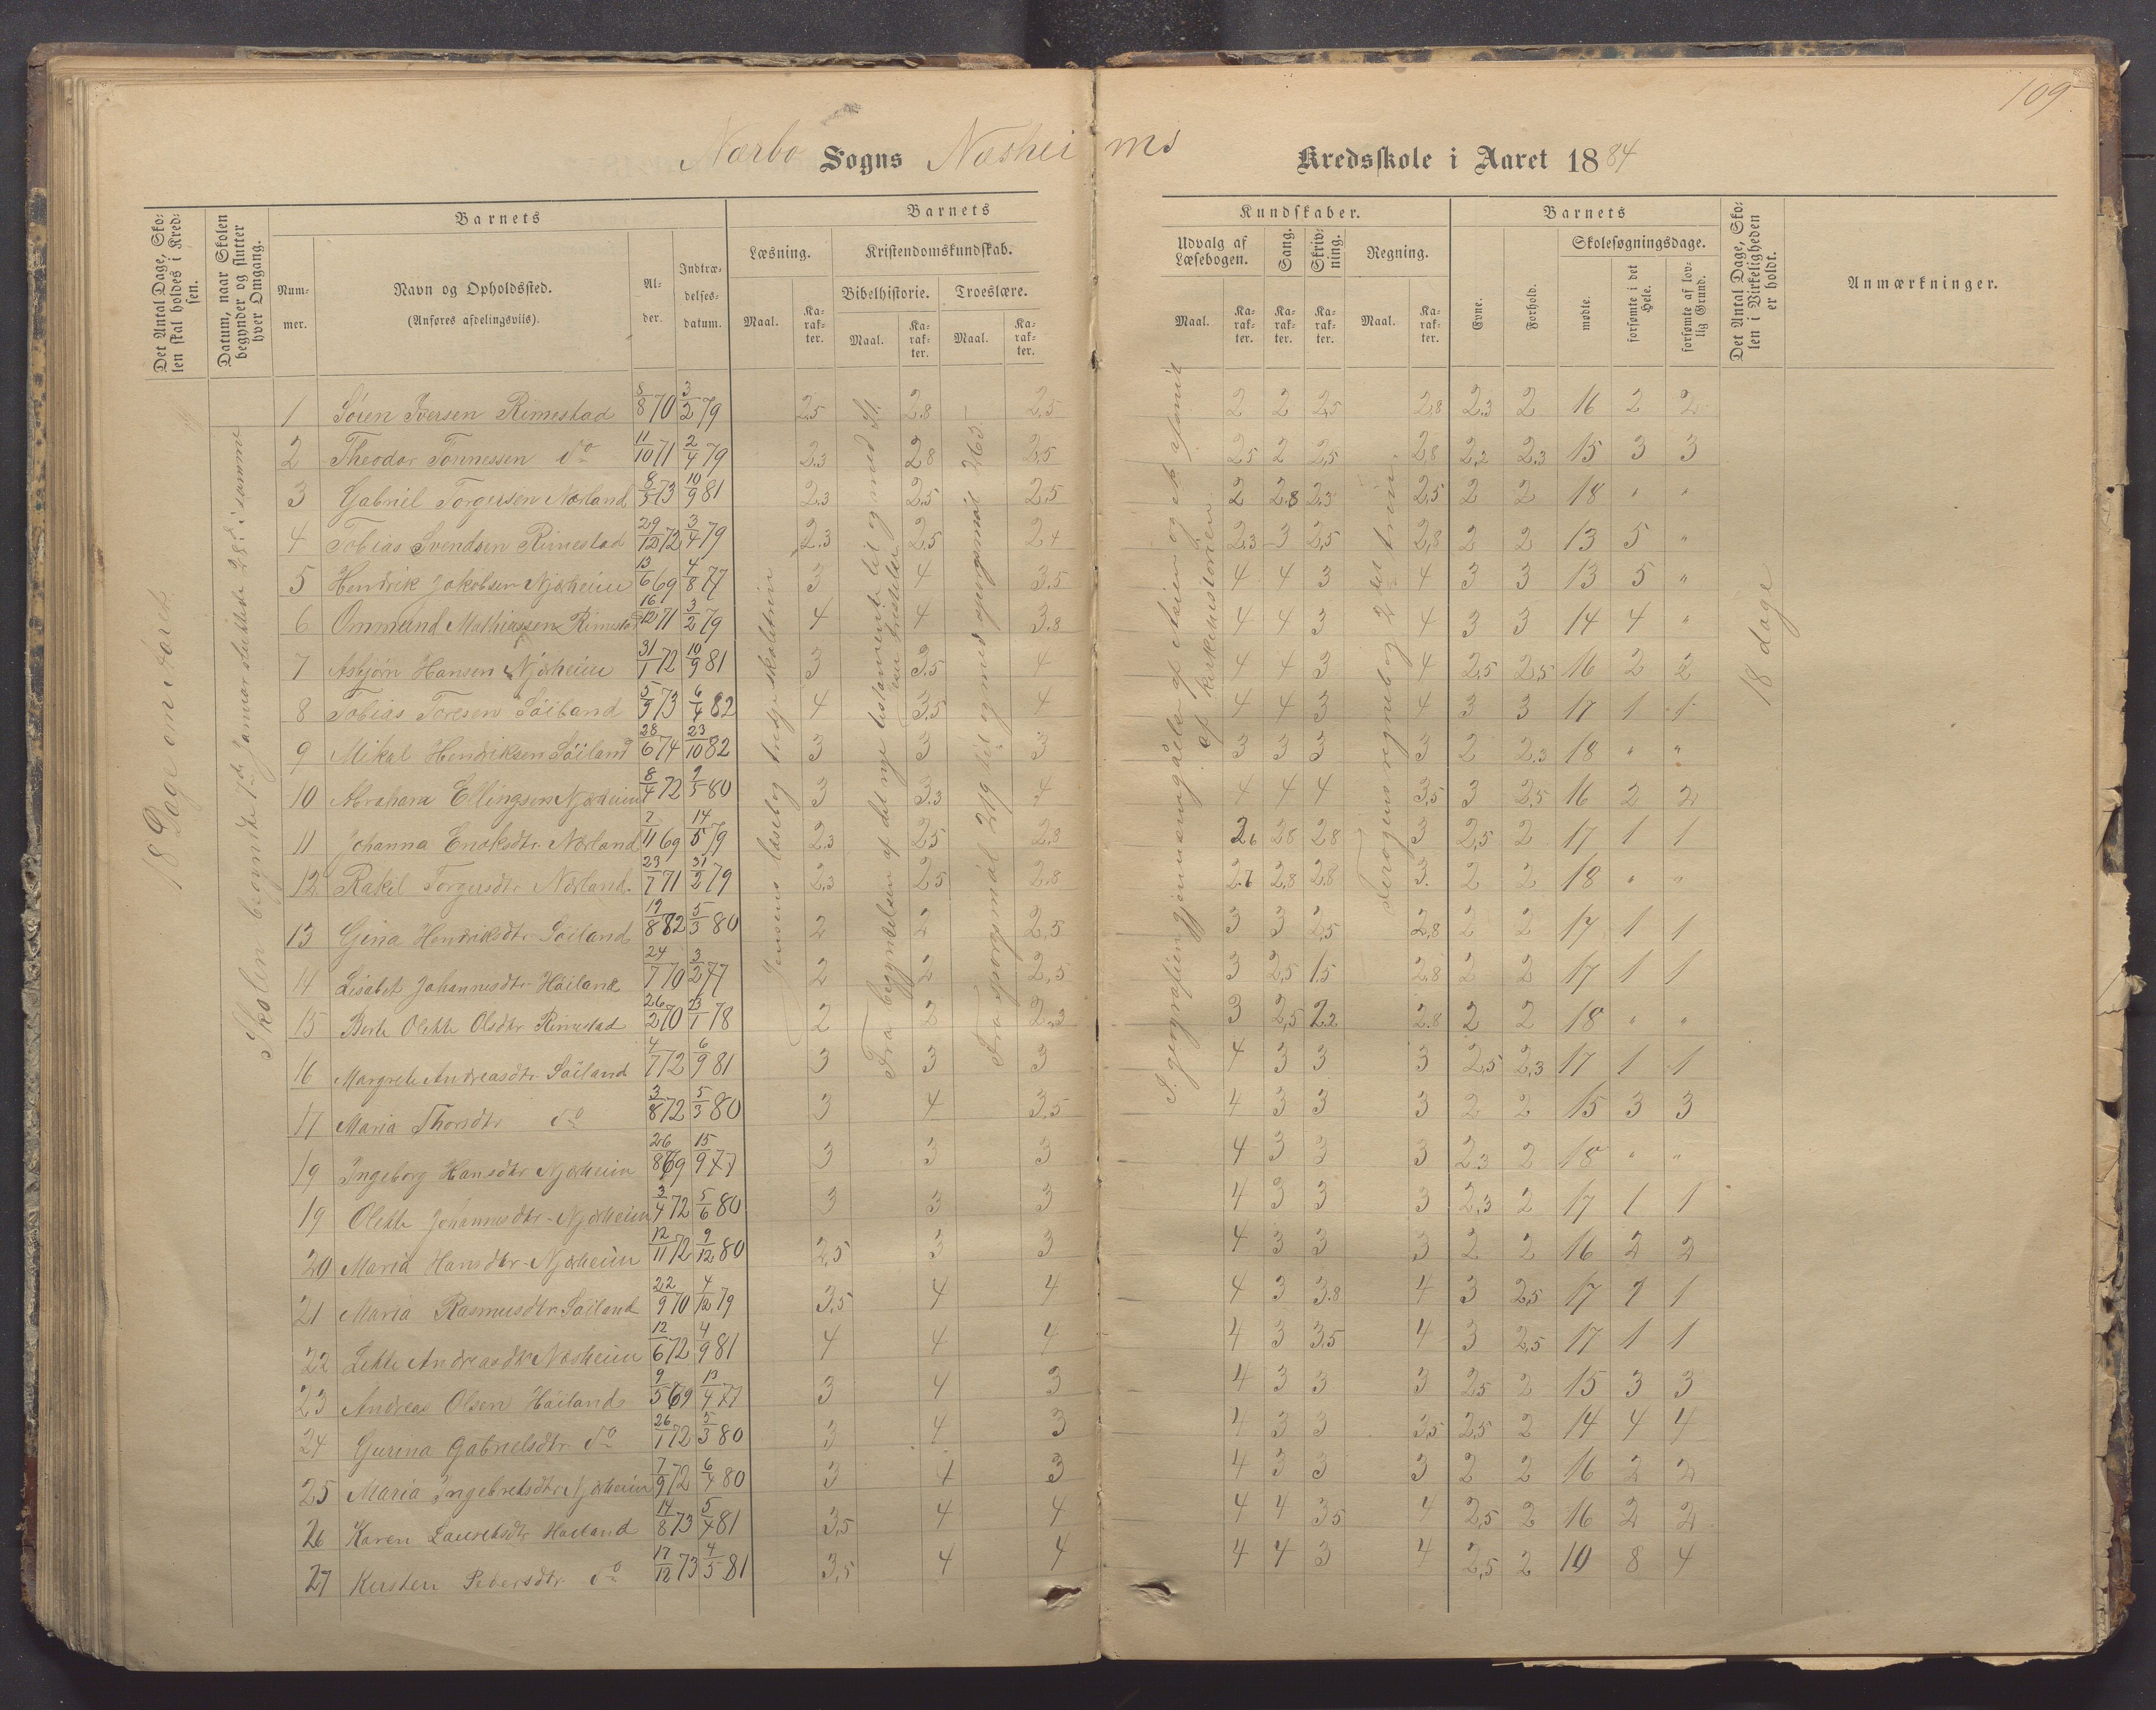 109
Nærbø Sogns Næsheims Kredsskole i Aaret 1884
Det Antal Dage, Skolen skal holdes i Kredsen.
Datum, naar Skolen begynder og slutter hver Omgang.
Barnets
Nummer.
Navn og Opholdssted.
(Anføres afdelingsviis).
Alder.
Indtrædelsesdatum.
Barnets Kundskaber.
Læsning.
Maal.
Karakter.
Kristendomskundskab.
Bibelhistorie.
Maal.
Karakter.
Troeslære.
Maal.
Karakter.
Udvalg af Læsebogen.
Maal.
Karakter.
Sang.
Karakter.
Skrivning.
Karakter.
Regning.
Maal.
Karakter.
Barnets
Evne.
Forhold.
Skolesøgningsdage.
mødte.
forsømte i det Hele.
forsømte af lovlig Grund.
Det Antal Dage, Skolen i Virkeligheden er holdt.
Anmærkninger.
18 Dage om året.
Skolen begyndte 1ste Januar sluttede 28de i samme
Jensens læsebog tredje skoletrin
Fra begyndelsen af det nye testamente til og med
Fra spørgsmål 219 til og med spørgsmål 263.
I geografien gjennemgåets af Asien og et afsnit af kirkehistorien
regnebog 2det trin.
18 dage
1 Sören Iversen Rimestad 8/8 70 3/2 79 2,5 2.8 2,5 2 2 2,5 2,8 2.3 2 16 2 2
2 Theodor Tönnessen do 11/10 71 2/4 79 2,3 2,8 2,5 2,5 2 2,5 2,8 2,2 2,3 15 3 3
3 Gabriel Torgersen Norland 8/5 73 10/9 81 2,3 2,5 2,5 2 2.8 2,3 2,5 2 2 18 " "
4 Tobias Svendsen Rimestad 29/12 72 3/4 79 2.3 2,5 2,4 2,3 3 2,5 2,8 2 2 13 5 "
5 Hendrik Jakobsen Njærheim 13/6 69 4/8 77 3 4 3.5 4 4 3 4 3 3 13 5 "
6 Ommund Mathiassen Rimestad 16/12 71 3/2 79 4 4 3.8 4 4 3 4 3 3 14 4 "
7 Asbjörn Hansen Njærheim 31/1 72 10/9 81 3 3.5 4 4 4 3 4 2,5 2,5 16 2 2
8 Tobias Toresen Söiland 5/9 73 6/4 82 4 3.5 4 4 4 3 4 3 3 17 1 1
9 Mikal Hendriksen Söiland 28/6 74 23/10 82 3 3 3 3 3 3 3 2 2,3 18 " "
10 Abraham Ellingsen Njærheim 8/4 72 9/5 80 3 3.3 4 4 4 4 3,5 3 2,5 16 2 2
11 Johanna Enoksdtr. Norland 7/11 69 14/5 79 2,3 2,5 2,8 2,6 2,8 2,8 3 2,5 2 17 1 1
12 Rakel Torgersdtr Norland. 23/7 71 31/2 79 2,3 2,5 2.8 2.7 2,8 2,8 3. 2 2 18 " "
13 Gina Hendriksdtr. Söiland 19/8 72 5/3 80 2 2 2,5 3 3 2,5 2,8 2 2 17 1 1
14 Lisabet Johannesdtr. Höiland 24/7 70 3/2 77 2 2 2,5 3 2,5 1.5 2.8 2 2 17 1 1
15 Berte Olette Olsdtr. Rimestad 26/2 70 23/1 78 2 2 2,3 3 2,5 2.2 2.8 2 2 18 " "
16 Margrete Andreasdtr. Söiland 4/7 72 6/9 81 3 3 3 4 3 3 3 2,5 2,3 17 1 1
17 Maria Thorsdtr do 3/8 72 5/3 80 3 4 3,5 4 3 3 3 2 2 15 3 3
19 Ingeborg Hansdtr. Njærheim 26/8 69 15/9 77 3 3 3 4 3 3 3 2,3 2 18 " "
19 Olette Johannesdtr. Njærheim 3/4 72 5/6 80 3 3 3 4 3 3 3 2,3 2 17 1 1
20 Maria Hansdtr. Njærheim 12/11 72 9/12 80 2,5 3 3 4 3 3 3 2 2 16 2 2
21 Maria Rasmusdtr. Söiland 22/9 70 4/12 79 3,5 4 4 4 3 3.8 4 3 2,5 17 1 1
22 Lette Andreasdtr. Næsheim 12/6 72 4/9 81 4 4 4 4 3 3.5 4 3 2,5 17 1 1
23 Andreas Olsen Höiland 9/5 69 13/4 77 3 4 3 4 3 3 3 2,5 2 15 3 3
24 Gurina Gabrielsdtr. do 26/1 72 5/3 80 3 4 3 4 3 3 3,5 2,5 2 14 4 4
25 Maria Ingebretsdtr. Njærheim 7/9 72 6/4 80 3 4 3 4 3 3 3 2 2 16 2 2
26 Karen Lauretsdtr. Höiland 14/8 73 5/4 81 3,5 4 4 4 4 3,5 4 2,5 2 16 2 2
27 Kirsten Pedersdtr. do 17/12 73 4/5 81 3,5 4 4 4 4 3 4 2,5 2 10 8 4